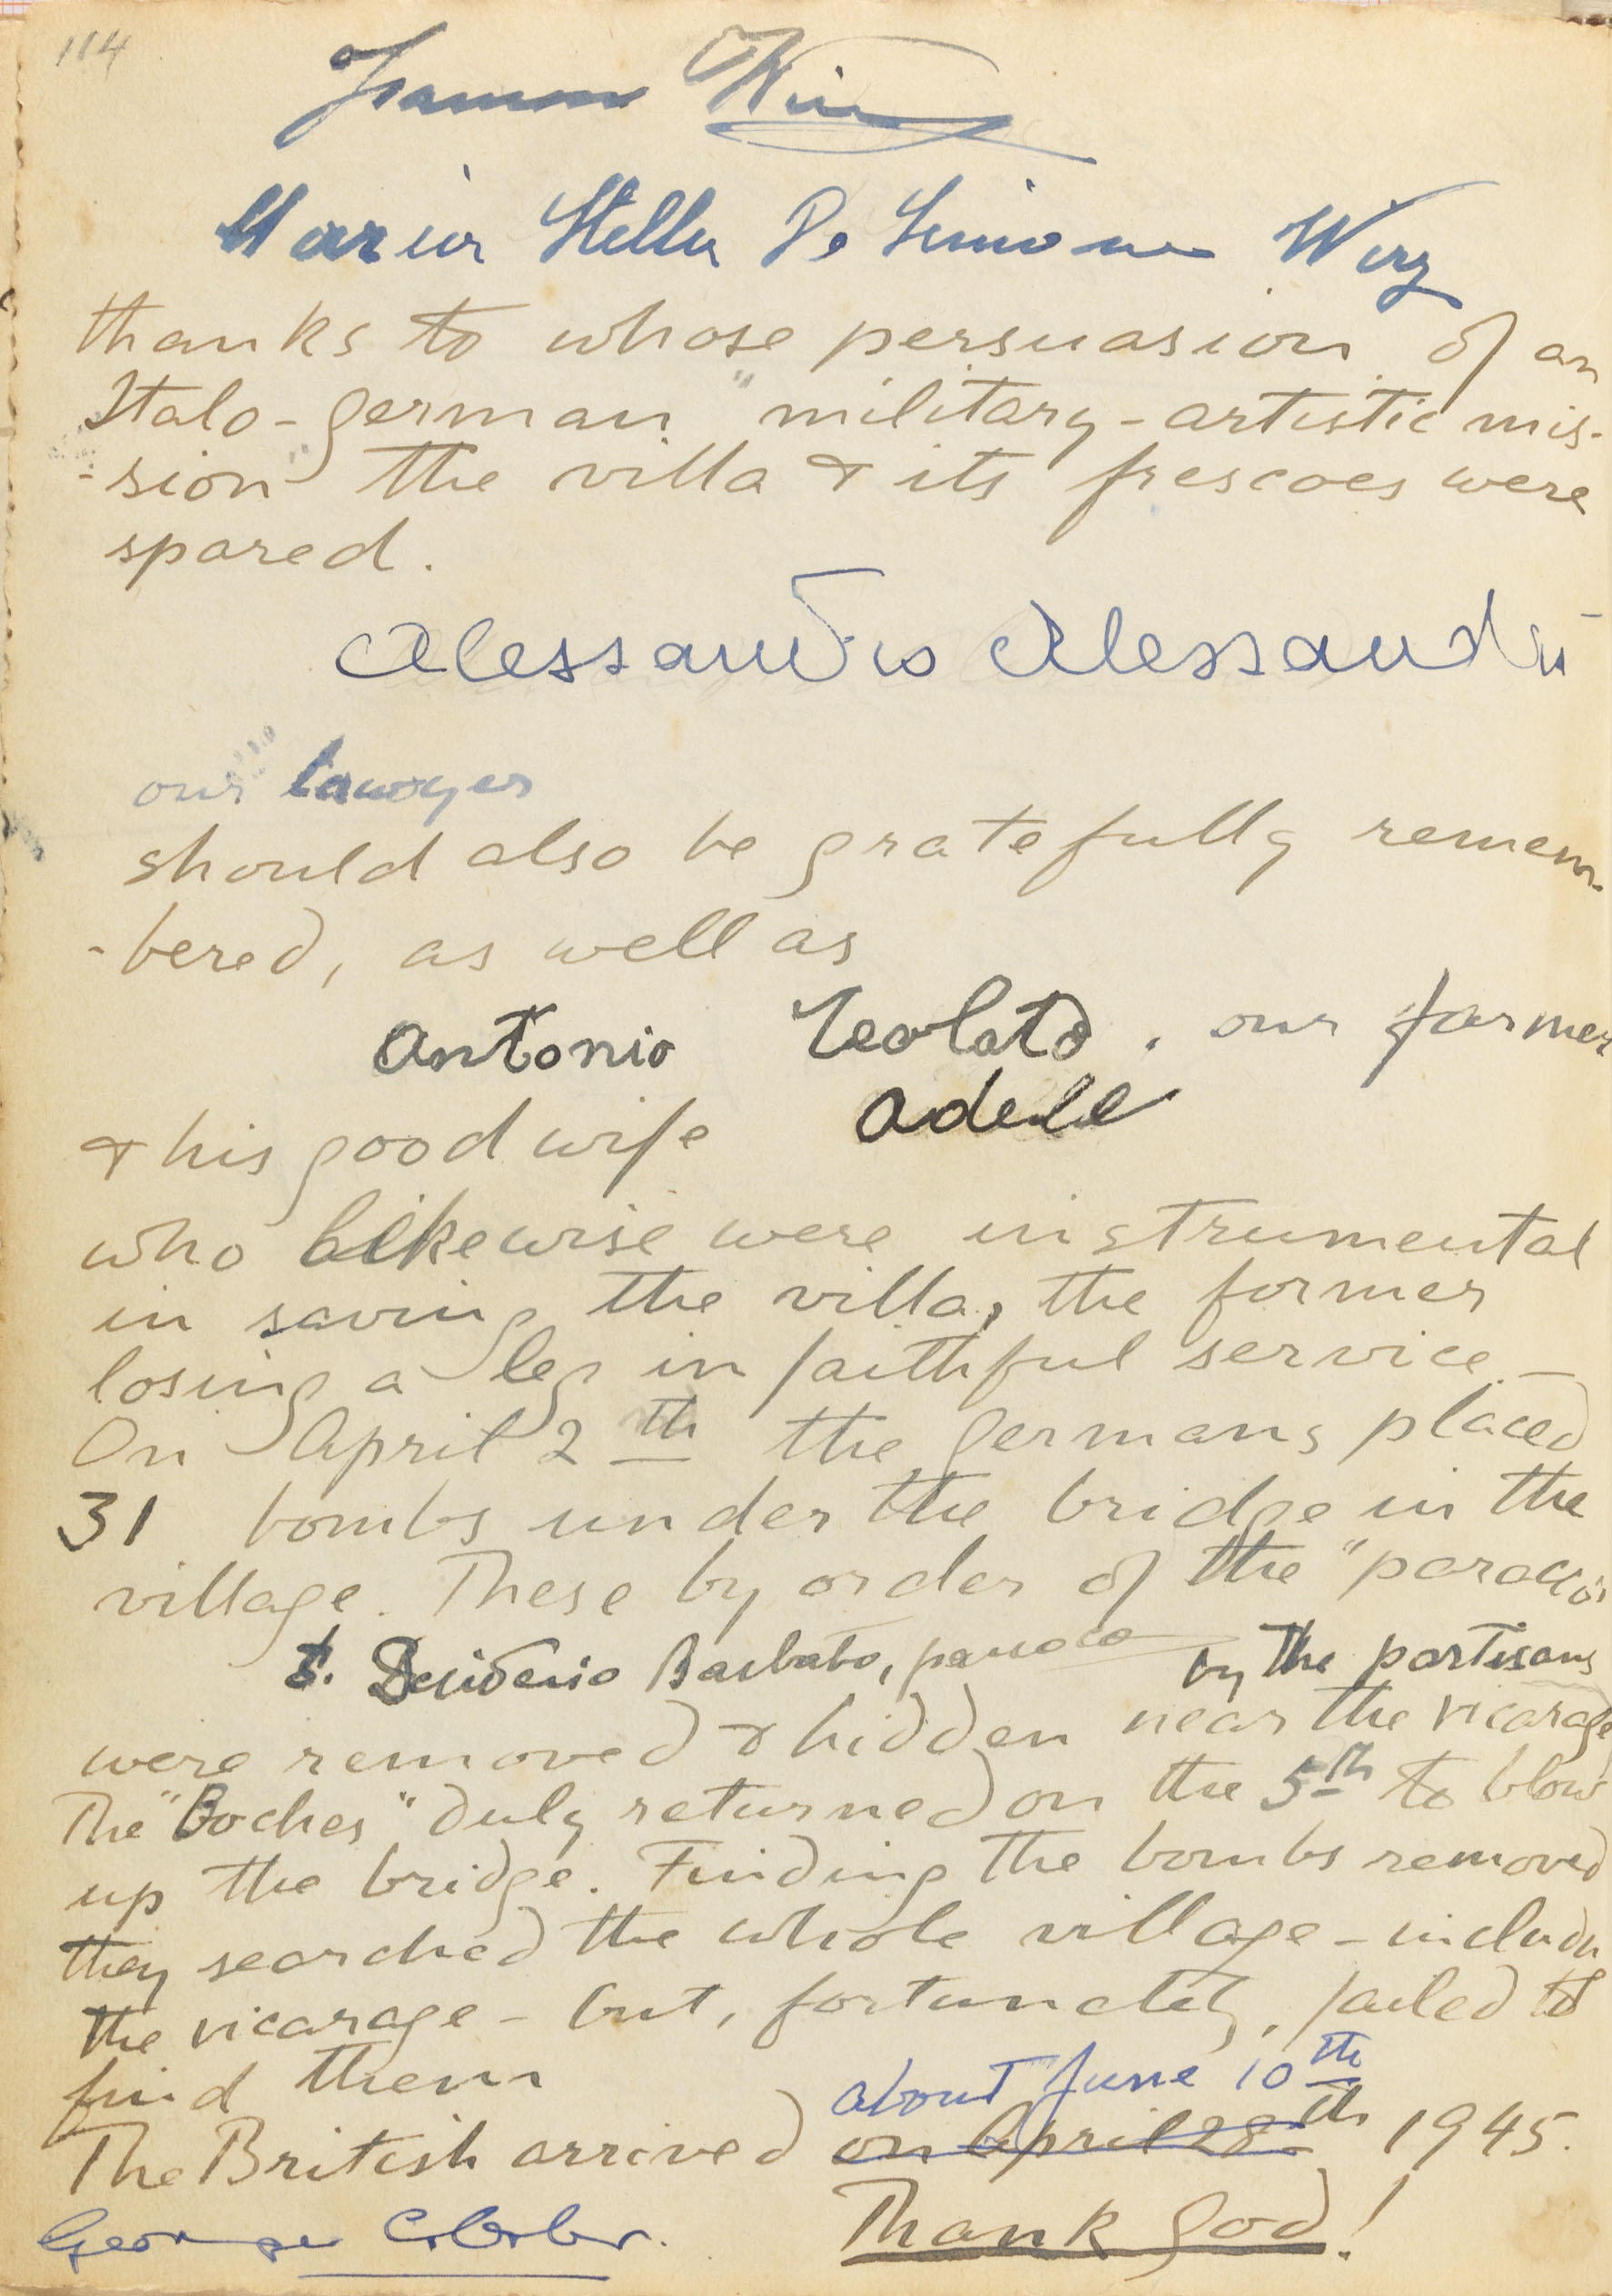 114
Maria Stella De Simone Wirz
thanks to whose persuasion of an
Italo-German "military-artistic mis-
-sion" the villa & its frescoes were
spared.
Alessandro Alessandri
our lawyer
should also be gratefully remem-
-bered, as well as
Antonio Teolato. our farmer
& his good wife Adele
who likewise were instrumental
in saving the villa, the former
losing a leg in faithful service_
On April 2th the Germans placed
31 bombs under the bridge in the
village. These by order of the "parocco
Desiderio Barbato, parroco by the partisans
were removed & hidden near the vicarage
The "Boches" duly returned on the 5th to blow
up the bridge. Finding the bombs removed
they searched the whole village - includin
the vicarage - but, fortunately, failed to
find them
about June 10th
The British arrived on April 28th 1945.
George Thank God!